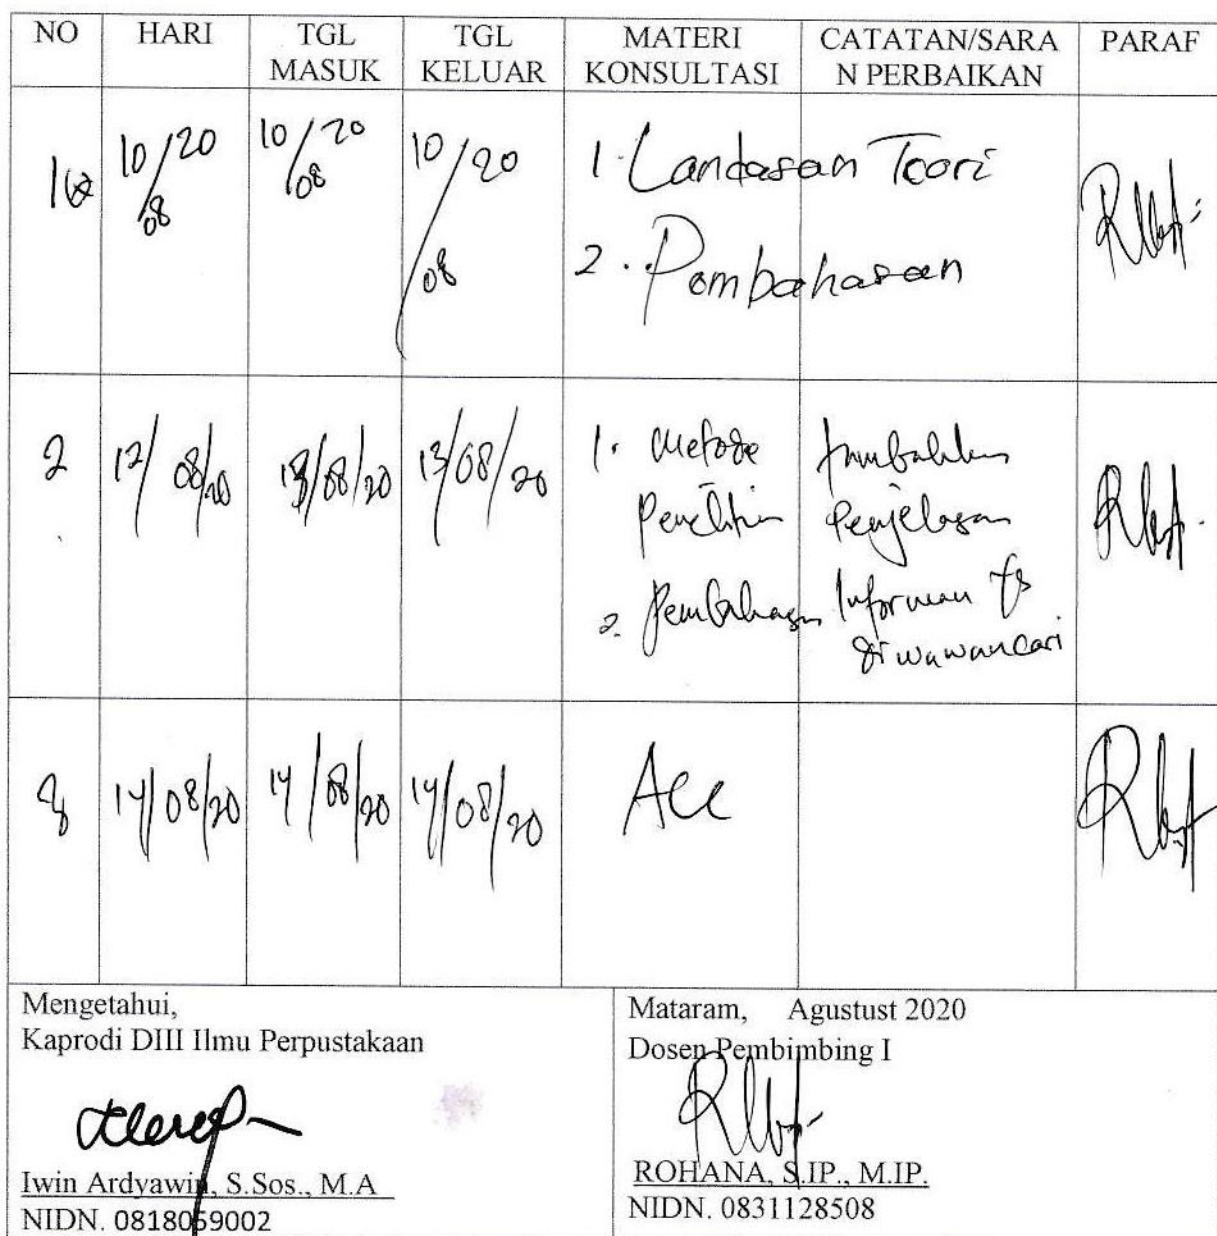 NO HARI TGL MASUK TGL KELUAR MATERI KONSULTASI CATATAN/SARA N PERBAIKAN PARAF
10/08 20 10/08 20 10/08 20 1. Landasan Teori
2. Pembahasan
2 12/08/20 13/08/20 13/08/20 1. Metode tambahkan
Penelitian Penjelasan
2. Pembahasan Informan yg
diwawancari
3 14/08/20 14/08/20 14/08/20 Acc
Mengetahui,
Kaprodi DIII Ilmu Perpustakaan
Iwin Ardyawin, S.Sos., M.A
NIDN. 0818059002
Mataram, Agustust 2020
Dosen Pembimbing I
ROHANA, S.IP., M.IP.
NIDN. 0831128508